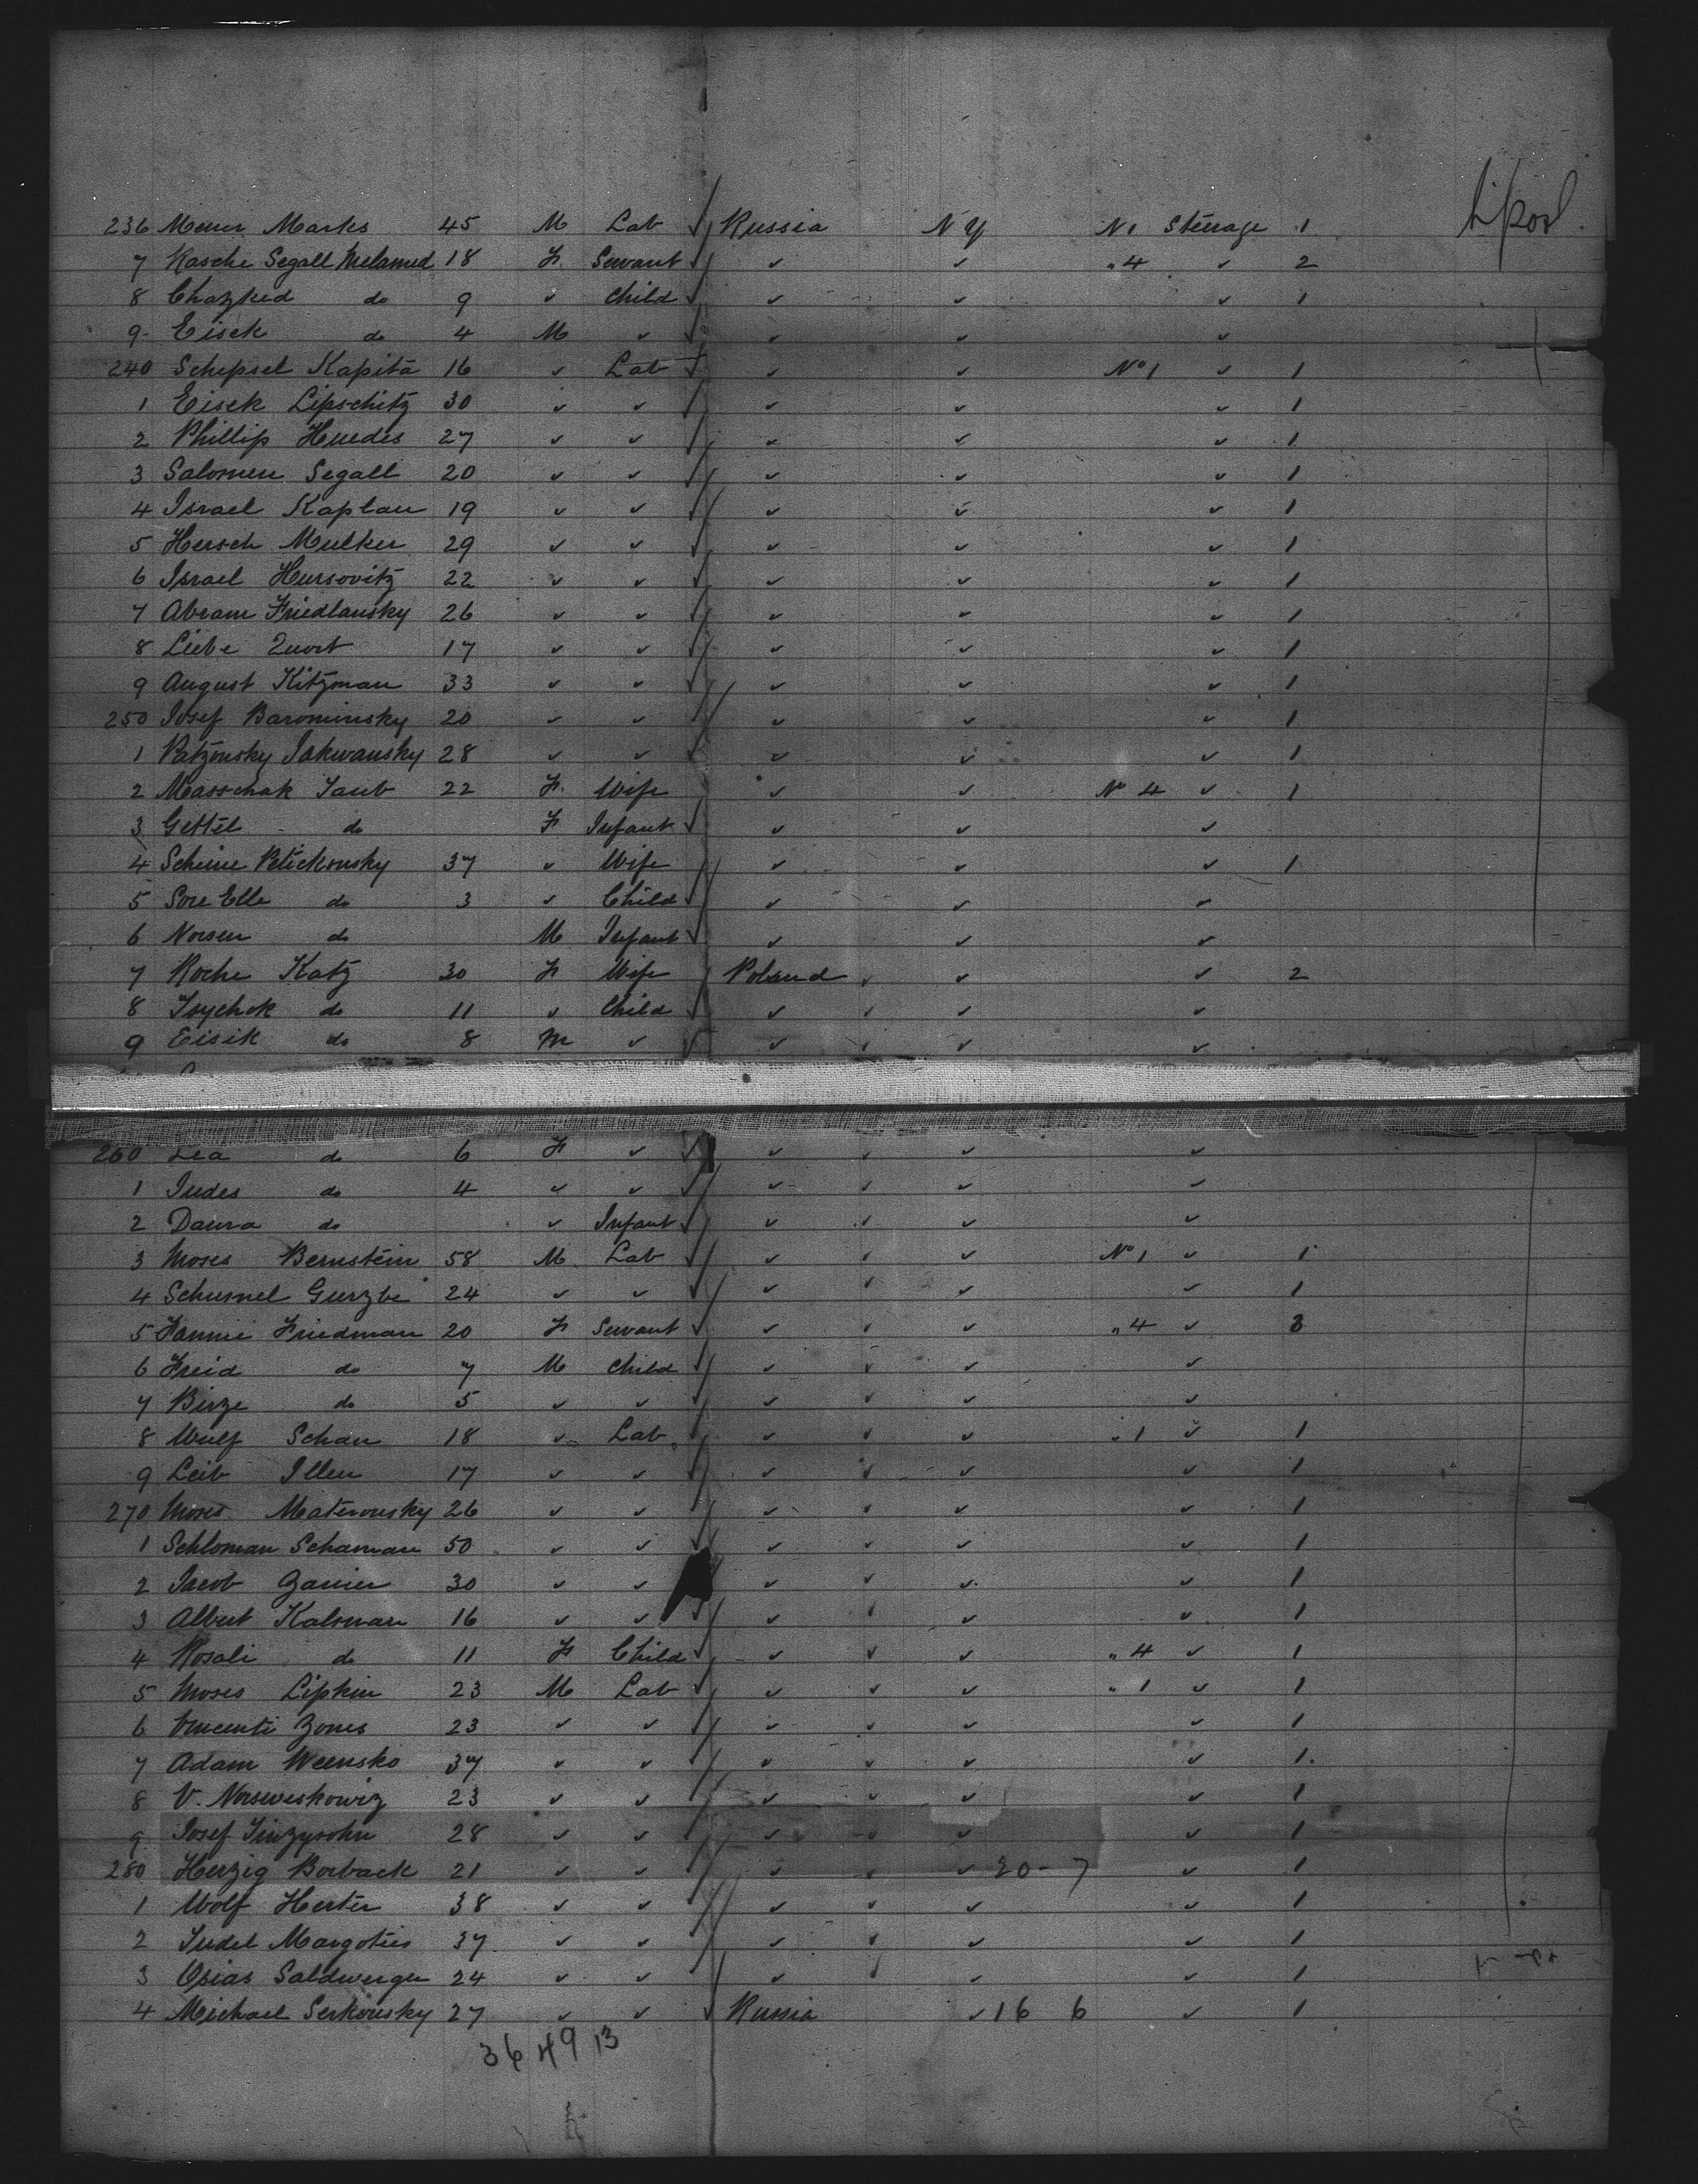 L'pool
236 Meuer Marks 45 M Lab ✓ Russia N Y N1 Steerage 1
7 Rasche Segall Melamed 18 F. Servant ✓ ✓ ✓ "4 ✓ 2
8 Chazked do 9 ✓ Child ✓ ✓ ✓ ✓ 1
9 Eisek do 4 M ✓ ✓ ✓ ✓ ✓
240 Schepsel Kapita 16 ✓ Lab ✓ ✓ ✓ No 1 ✓ 1
1 Eisek Lipschitz 30 ✓ ✓ ✓ ✓ ✓ ✓ 1
2 Phillip Huedes 27 ✓ ✓ ✓ ✓ ✓ ✓ 1
3 Salomen Segall 20 ✓ ✓ ✓ ✓ ✓ ✓ 1
4 Israel Kaplan 19 ✓ ✓ ✓ ✓ ✓ ✓ 1
5 Hersch Mulker 29 ✓ ✓ ✓ ✓ ✓ ✓ 1
6 Israel Hursovitz 22 ✓ ✓ ✓ ✓ ✓ ✓ 1
7 Abram Friedlansky 26 ✓ ✓ ✓ ✓ ✓ ✓ 1
8 Liebe Zuort 17 ✓ ✓ ✓ ✓ ✓ ✓ 1
9 August Kitzman 33 ✓ ✓ ✓ ✓ ✓ ✓ 1
250 Josef Barominsky 20 ✓ ✓ ✓ ✓ ✓ ✓ 1
1 Patzonsky Jakwansky 28 ✓ ✓ ✓ ✓ ✓ ✓ 1
2 Masschak Taub 22 F. Wife ✓ ✓ No 4 ✓ 1
3 Gettel do F Infant ✓ ✓ ✓ ✓
4 Scheine Petickonsky 37 ✓ Wife ✓ ✓ ✓ 1
5 Sore Elle do 3 ✓ Child ✓ ✓ ✓ ✓
6 Norsen do M Infant ✓ ✓ ✓ ✓
7 Roche Katz 30 F Wife Poland ✓ ✓ ✓ 2
8 Isychok do 11 ✓ Child ✓ ✓ ✓ ✓ ✓
9 Eisik do 8 M ✓ ✓ ✓ ✓ ✓ ✓
260 Lea do 6 F ✓ ✓ ✓ ✓ ✓ ✓
1 Judes do 4 ✓ ✓ ✓ ✓ ✓ ✓ ✓
2 Dawra do ✓ Infant ✓ ✓ ✓ ✓ ✓
3 Moses Bernstein 58 M Lab ✓ ✓ ✓ ✓ No 1 ✓ 1
4 Schumel Gurzbe 24 ✓ ✓ ✓ ✓ ✓ ✓ ✓ 1
5 Fannie Friedman 20 F Servant ✓ ✓ ✓ ✓ "4 ✓ 3
6 Freid do 7 M Child ✓ ✓ ✓ ✓ ✓
7 Birze do 5 ✓ ✓ ✓ ✓ ✓ ✓ ✓
8 Wulf Schan 18 ✓ Lab ✓ ✓ ✓ ✓ "1 ✓ 1
9 Leib Illen 17 ✓ ✓ ✓ ✓ ✓ ✓ ✓ 1
270 Moses Materonsky 26 ✓ ✓ ✓ ✓ ✓ ✓ 1
1 Schloman Schaman 50 ✓ ✓ ✓ ✓ ✓ ✓ ✓ 1
2 Jacob Zanier 30 ✓ ✓ ✓ ✓ ✓ ✓ 1
3 Albert Kalsman 16 ✓ ✓ ✓ ✓ ✓ ✓ ✓ 1
4 Rosali do 11 F Child ✓ ✓ ✓ ✓ "4 ✓ 1
5 Moses Lipkin 23 M Lab ✓ ✓ ✓ ✓ "1 ✓ 1
6 Vincenti Zones 23 ✓ ✓ ✓ ✓ ✓ ✓ ✓ 1
7 Adam Weensko 37 ✓ ✓ ✓ ✓ ✓ ✓ ✓ 1
8 V. Norsweskowiz 23 ✓ ✓ ✓ ✓ ✓ ✓ ✓ 1
9 Josef Jinzysohn 28 ✓ ✓ ✓ ✓ ✓ ✓ ✓ 1
280 Herzig Borback 21 ✓ ✓ ✓ ✓ ✓ ✓ 20-7 ✓ 1
1 Wolf Herter 38 ✓ ✓ ✓ ✓ ✓ ✓ ✓ 1
2 Judel Margoties 37 ✓ ✓ ✓ ✓ ✓ ✓ ✓ 1
3 Osias Saldwerger 24 ✓ ✓ ✓ ✓ ✓ ✓ 1
4 Michael Serkousky 27 ✓ ✓ ✓ Russia ✓ 16 6 ✓ 1
36 49 13